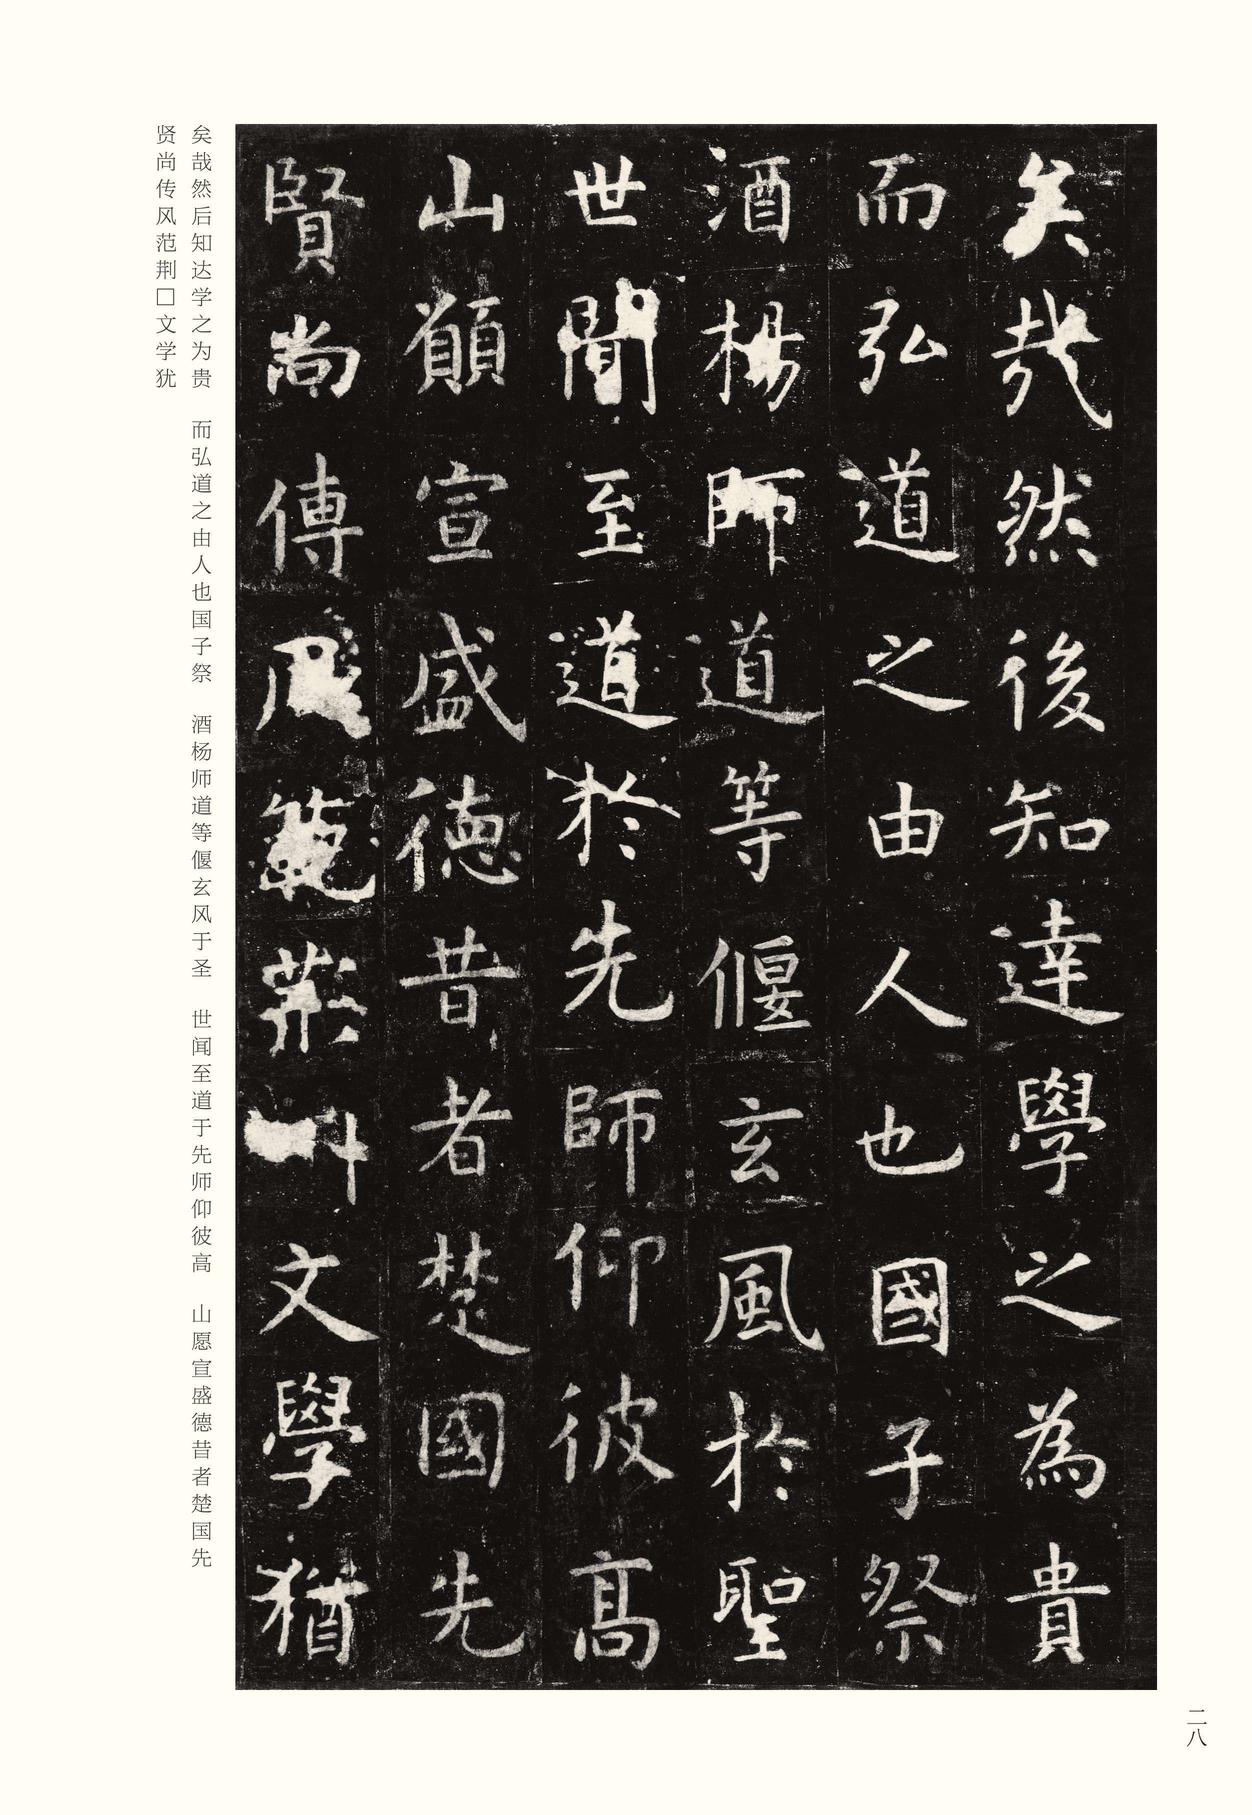 矣哉然後知達學之為貴
而弘道之由人也國子祭
酒楊師道等偃玄風於聖
世聞至道於先師仰彼高
山願宣盛德昔者楚國先
賢尚傳風範荊文學猶
矣哉然后知达学之为贵 而弘道之由人也国子祭 酒杨师道等偃玄风于圣 世闻至道于先师仰彼高 山愿宣盛德昔者楚国先
贤尚传风范荆□文学犹
二八